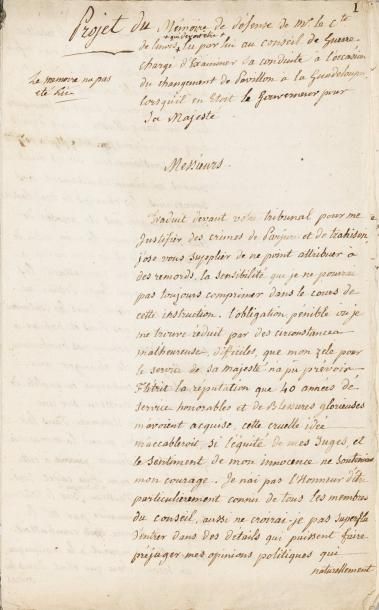 1
Projet du Mémoire de défense de Mr le Cte
de Linois, lu par lui au conseil de Guerre
qui devoit être
chargé d'Examiner sa conduite à l'occasion
Le mémoire n'a pas
été lu
du changement de Pavillon à la Guadeloupe
lorsqu'il en étoit le Gouverneur pour
Sa Majesté
Messieurs.
Traduit devant votre tribunal pour me
Justifier des crimes de Parjure et de trahison
j'ose vous Supplier de ne point attribuer à
des remords, la sensibilité que je ne pourrai
pas toujours comprimer dans le cours de
cette instruction. L'obligation pénible où je
me trouve réduit par des circonstances
malheureuses, difficiles, que mon zele pour
le service de sa majesté n'a pu prévoir
flétrit la réputation que 40 années de
service honorables et de Blessures glorieuses
m'avoient acquise, cette cruelle idée
m'accableroit si l'équité de mes Juges, et
le sentiment de mon innocence ne soutenoient
mon courage. Je n'ai pas l'Honneur d'être
particulièrement connu de tous les membres
du conseil, aussi ne croirai-je pas superflu
d'entrer dans des détails qui puissent faire
préjuger mes opinions politiques qui
naturellement